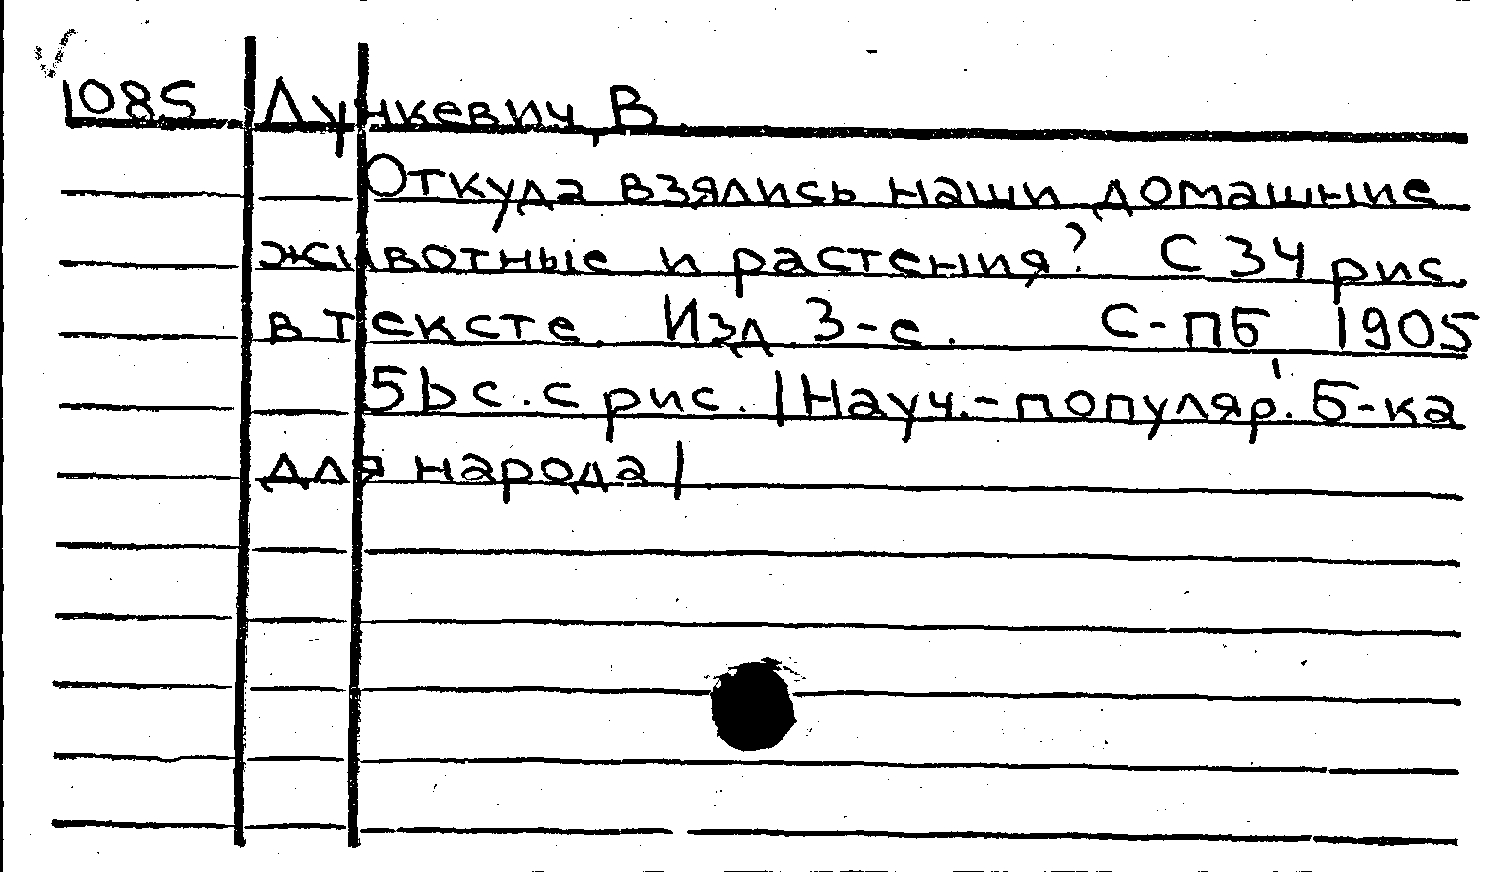 1085 Дункевич, В.
Откуда взялись наши домашние
животные и растения? С 34 рис.
в тексте. Изд 3-е. С-ПБ, 1905
56 с. с рис. |Науч.-популяр. Б-ка
для народа|